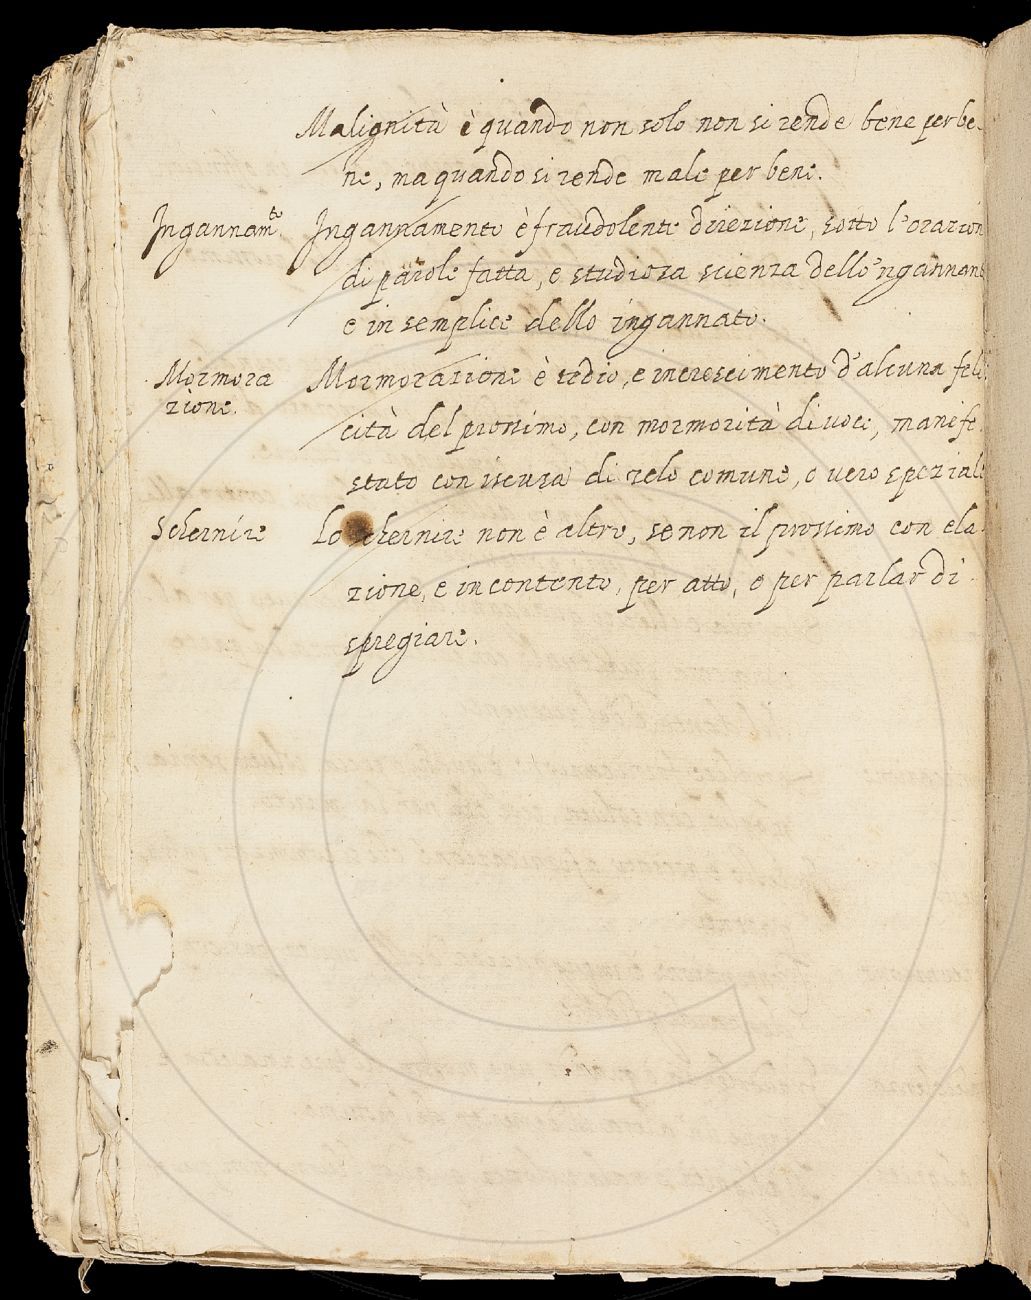 Malignità è quando non solo non si rende bene per be-
ne, ma quando si rende male per bene.
Ingannam.to Ingannamento è fraudolente direzione, sotto l'orazion
di parole fatta, e studiosa scienza dello 'ngannan
e in semplice dello ingannato.
Mormora Mormorazione è tedio, e increscimento d'alcuna feli
zione. cità del prossimo, con mormorità di voce, manife
stato con iscusa di zelo comune, o vero speziale
Schernire Lo schernire non è altro, se non il prossimo con ela
zione, e incontento, per atto, o per parlar di
spregiare.